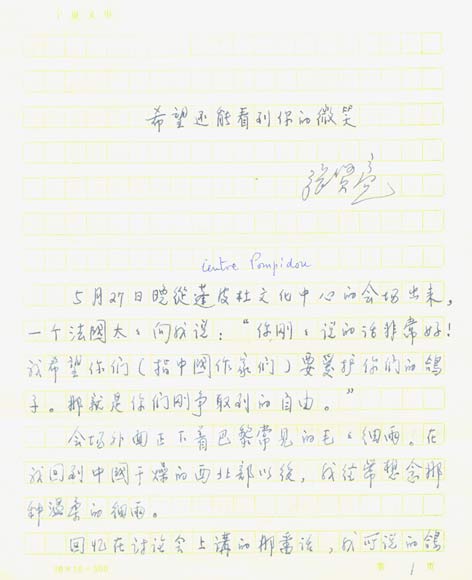 希望还能看到你的微笑
张贤亮
Centre Pompidou
5月27日晚從蓬皮杜文化中心的会場出来,
一个法國太々向我说:“你刚々说的话非常好!
我希望你们(指中國作家们)要爱护你们的鴿
子。那就是你们刚争取到的自由。”
会場外面正下着巴黎常见的毛々细雨。在
我回到中國干燥的西北部以後,我经常想念那
种温柔的细雨。
回忆在讨论会上講的那番话,我所说的鴿
第 1 页